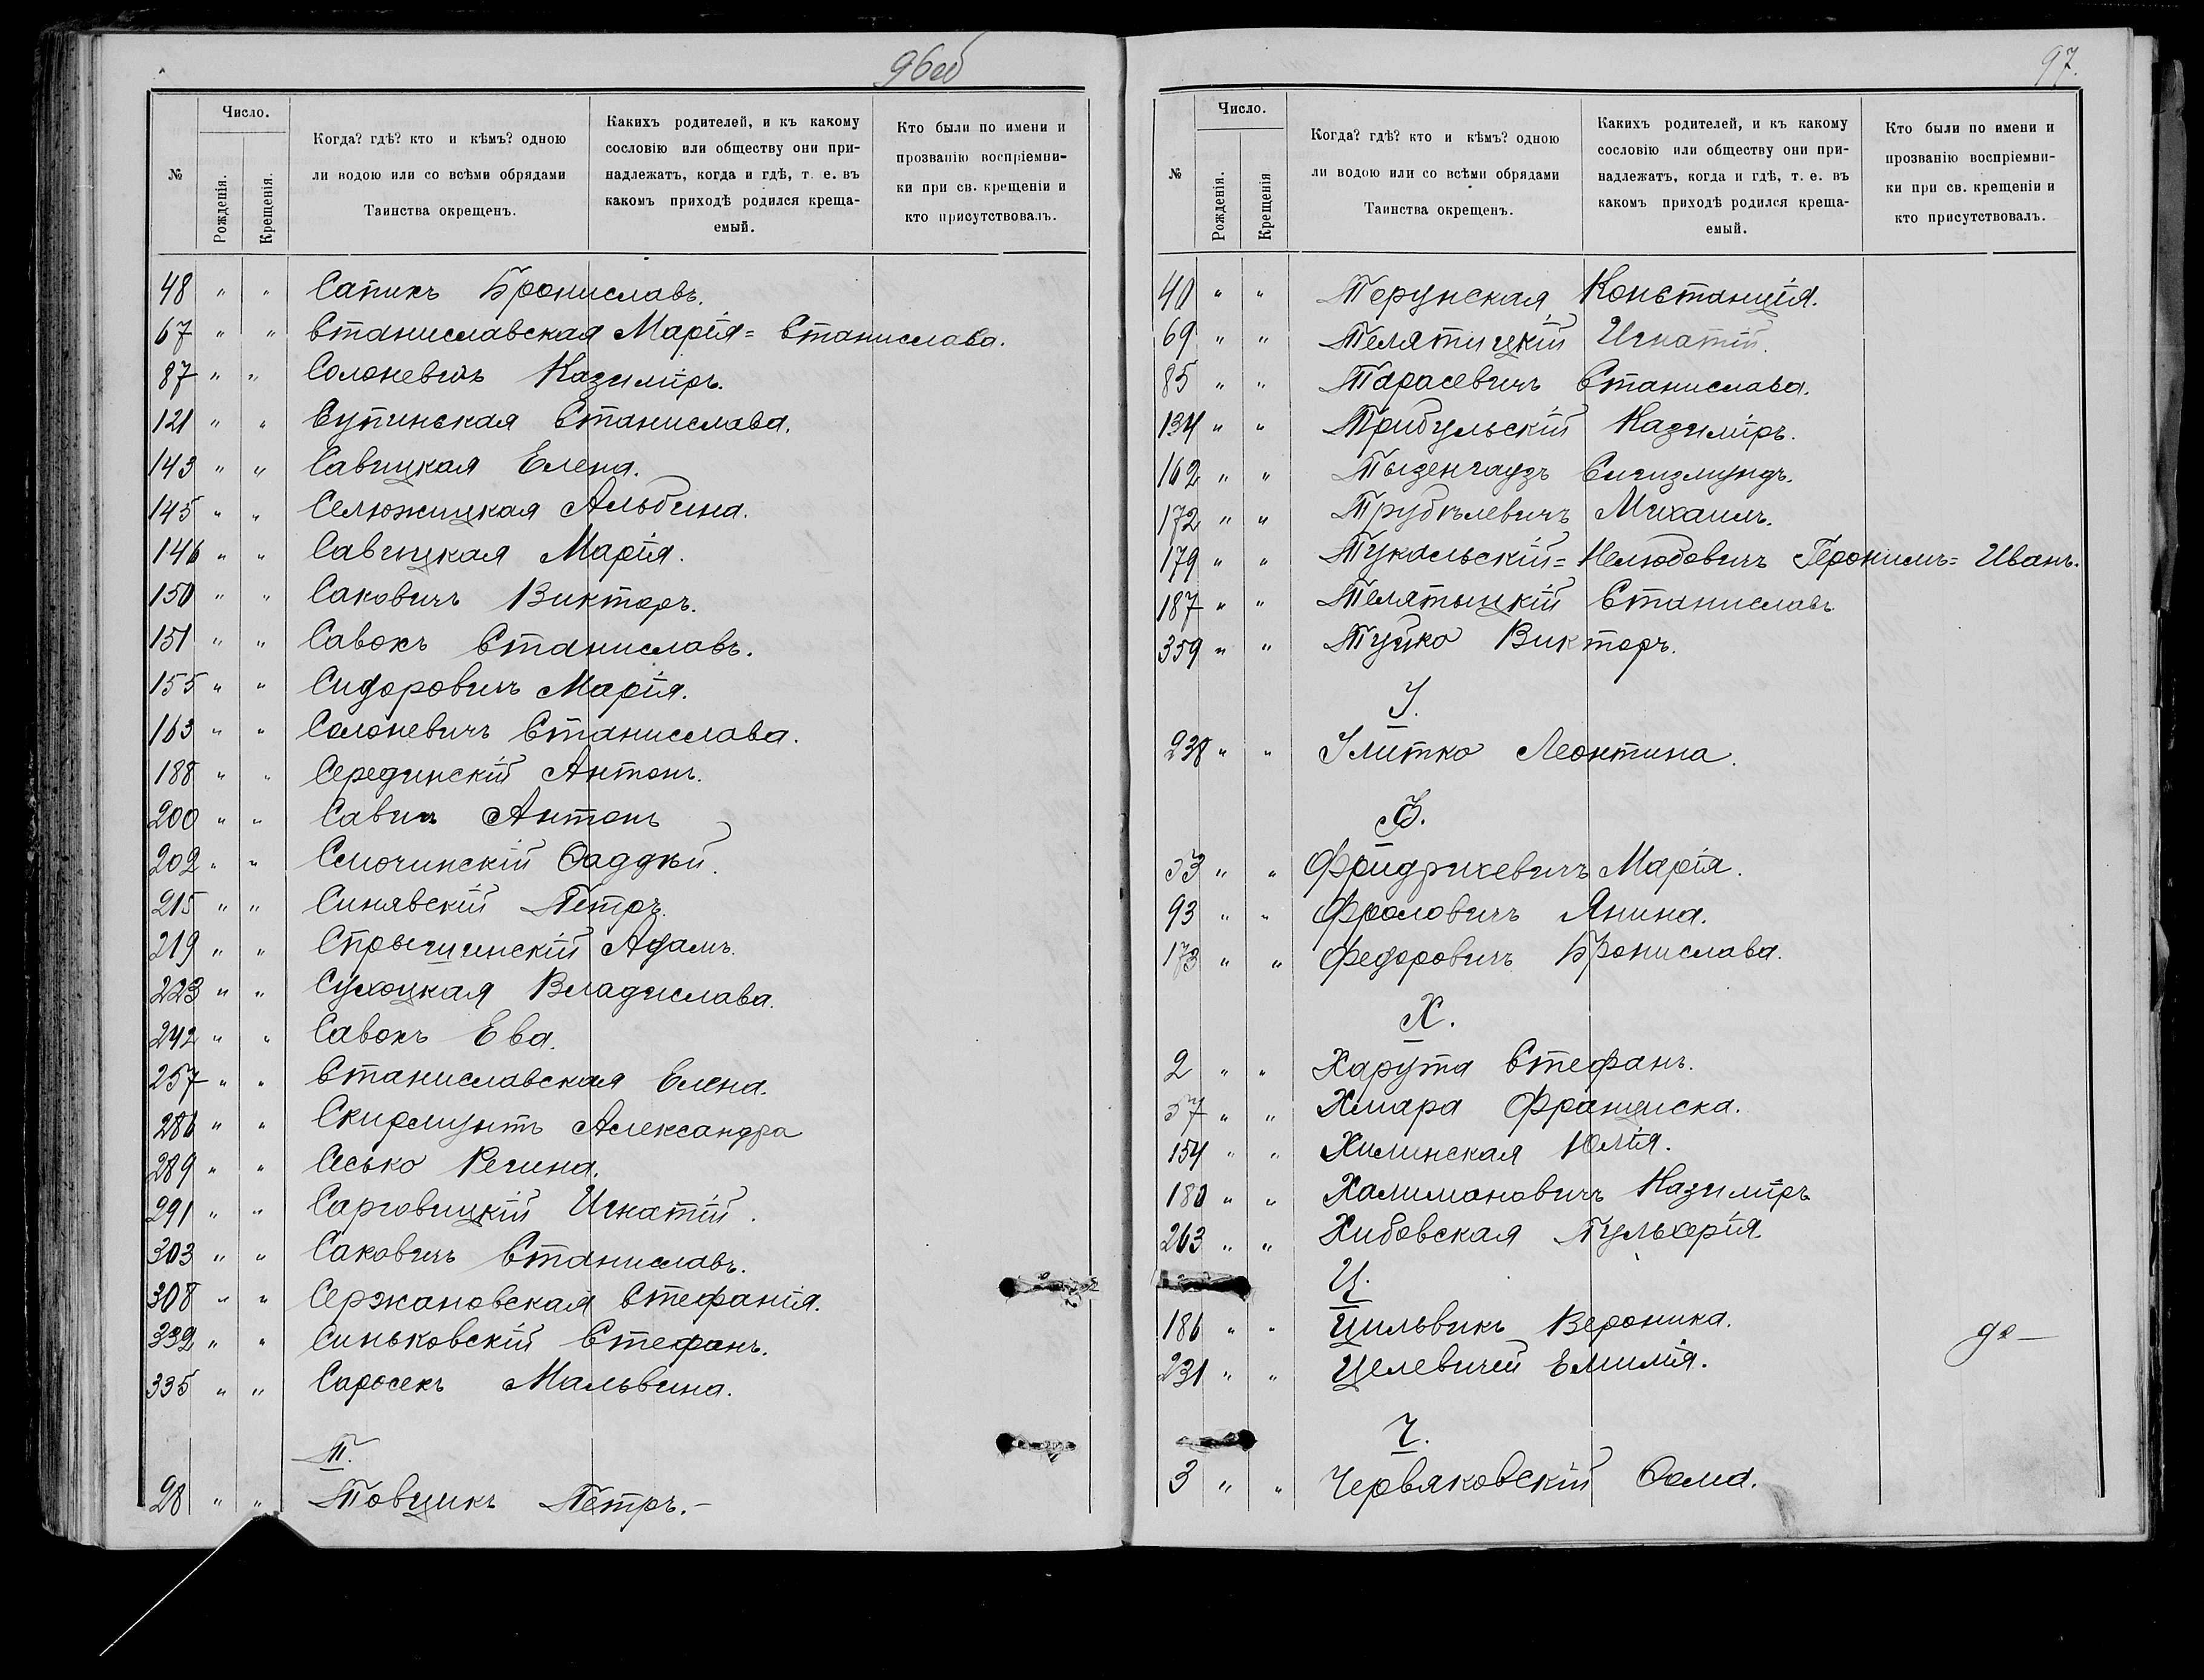 96об
№
Число.
Рожденія.
Крещенія.
Когда? гдѣ? кто и кѣмъ? одною
ли водою или со всѣми обрядами
Таинства окрещенъ.
Какихъ родителей, и къ какому
сословію или обществу они при-
надлежатъ, когда и гдѣ, т. е. въ
какомъ приходѣ родился креща-
емый.
Кто были по имени и
прозванію воспріемни-
ки при св. крещеніи и
кто присутствовалъ.
48 " " Сапикъ Брониславъ.
67 " " Станиславская Марія= Станислава.
87 " " Солоневичъ Казиміръ.
121 " " Супинская Станислава.
143 " " Савицкая Елена.
145 " " Селюжицкая Альбина.
146 " " Савицкая Марія.
150 " " Саковичъ Викторъ.
151 " " Савокъ Станиславъ.
155 " " Сидоровичъ Марія.
163 " " Солоневичъ Станислава.
188 " " Серединскій Антонъ.
200 " " Савичъ Антонъ
202 " " Смочинскій Фаддѣй.
215 " " Синявскій Петръ.
219 " " Спрычинскій Адамъ.
223 " " Сухоцкая Владислава.
242 " " Савокъ Ева.
257 " " Станиславская Елена.
286 " " Скирмунтъ Александра
289 " " Сесько Регина.
291 " " Сарговицкій Игнатій.
303 " " Саковичъ Станиславъ.
308 " " Сержановская Стефанія.
332 " " Синьковскій Стефанъ.
335 " " Саросекъ Мальвина.
Т.
28 " " Товщикъ Петръ.-
97.
№
Число.
Рожденія.
Крещенія
Когда? гдѣ? кто и кѣмъ? одною
ли водою или со всѣми обрядами
Таинства окрещенъ.
Какихъ родителей, и къ какому
сословію или обществу они при-
надлежатъ, когда и гдѣ, т. е. въ
какомъ приходѣ родился креща-
емый.
Кто были по имени и
прозванію воспріемни-
ки при св. крещеніи и
кто присутствовалъ.
40 " " Терунская Констанція.
69 " " Телятицкій Игнатій.
85 " " Тарасевичъ Станислава.
134 " " Трибульскій Казиміръ.
162 " " Тызенгаузъ Сигизмундъ.
172 " " Михаилъ.
179 " " Тукальскій= Нелюбовичъ Геронимъ= Иванъ.
187 " " Телятыцкій Станиславъ
359 " " Тушко Викторъ.
У.
238 " " Улитко Леонтина.
Ф.
53 " " Фридрихевичъ Марія.
93 " " Фроловичъ Янина.
173 " " Федоровичъ Бронислава.
Х.
2 " " Харута Стефанъ.
57 " " Хмара Франциска.
154 " " Хилинская Юлія.
180 " " Халимановичъ Казиміръ
263 " " Хибовская Пульхерія.
Ц.
186 " " Цильвикъ Вероника.
231 " " Целевичей Емилія.
Ч.
3 " " Червяковскій Фома.